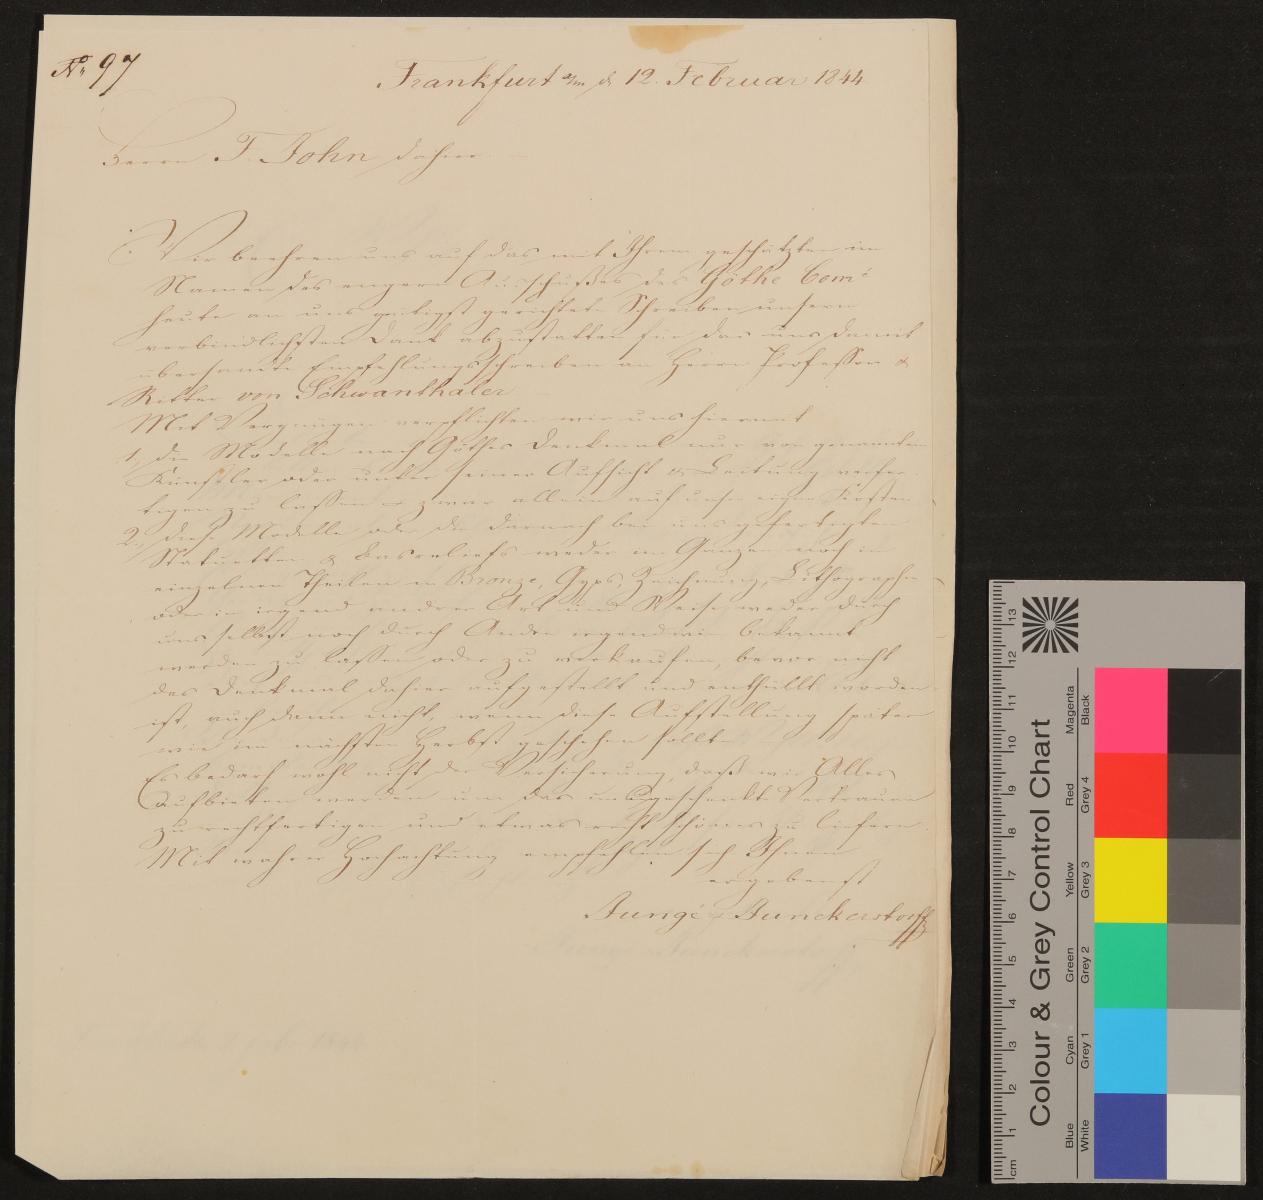 No 97
Frankfurt a/m d. 12. Februar 1844
Herrn F. John dahier.
Wir beehren uns auf das mit Ihrem geschätzten im
Namen des engern Ausschußes des Göthe Comé
heute an uns gütigst gerichteten Schreiben unsern
verbindlichsten Dank abzustatten für das uns damit
übersandte Empfehlungsschreiben an Herrn Professor &
Ritter von Schwanthaler
Mit Vergnügen verpflichten wir uns hiermit
1, die Modelle nach Göthes Denkmal nur von genanntem
Künstler oder unter seiner Aufsicht & Leitung verfer
tigen zu lassen – zwar allein auf unsre eigne Kosten
2., diese Modelle oder die darnach bei uns gefertigten
Statuetten & Basreliefs weder im Ganzen noch in
einzelnen Theilen in Bronze, Gyps, Zeichnung, Lithographie
oder in irgend andrer Art und Weise, weder durch
uns selbst noch durch Andre irgendwie bekannt
werden zu lassen oder zu verkaufen, bevor nicht
das Denkmal dahier aufgestellt und enthüllt worden
ist, auch dann nicht, wenn diese Aufstellung später
wie im nächsten Herbst geschehen sollte
Es bedarf wohl nicht der Versicherung, daß wir Alles
aufbieten werden um das uns geschenkte Vertrauen
zu rechtfertigen und etwas recht schönes zu liefern.
Mit wahrer Hochachtung empfehlen sich Ihnen
ergebenst
Jungé & Junckerstorff
Colour & Grey Control Chart
Blue Cyan Green Yellow Red Magenta
White Grey 1 Grey 2 Grey 3 Grey 4 Black
cm 1 2 3 4 5 6 7 8 9 10 11 12 13